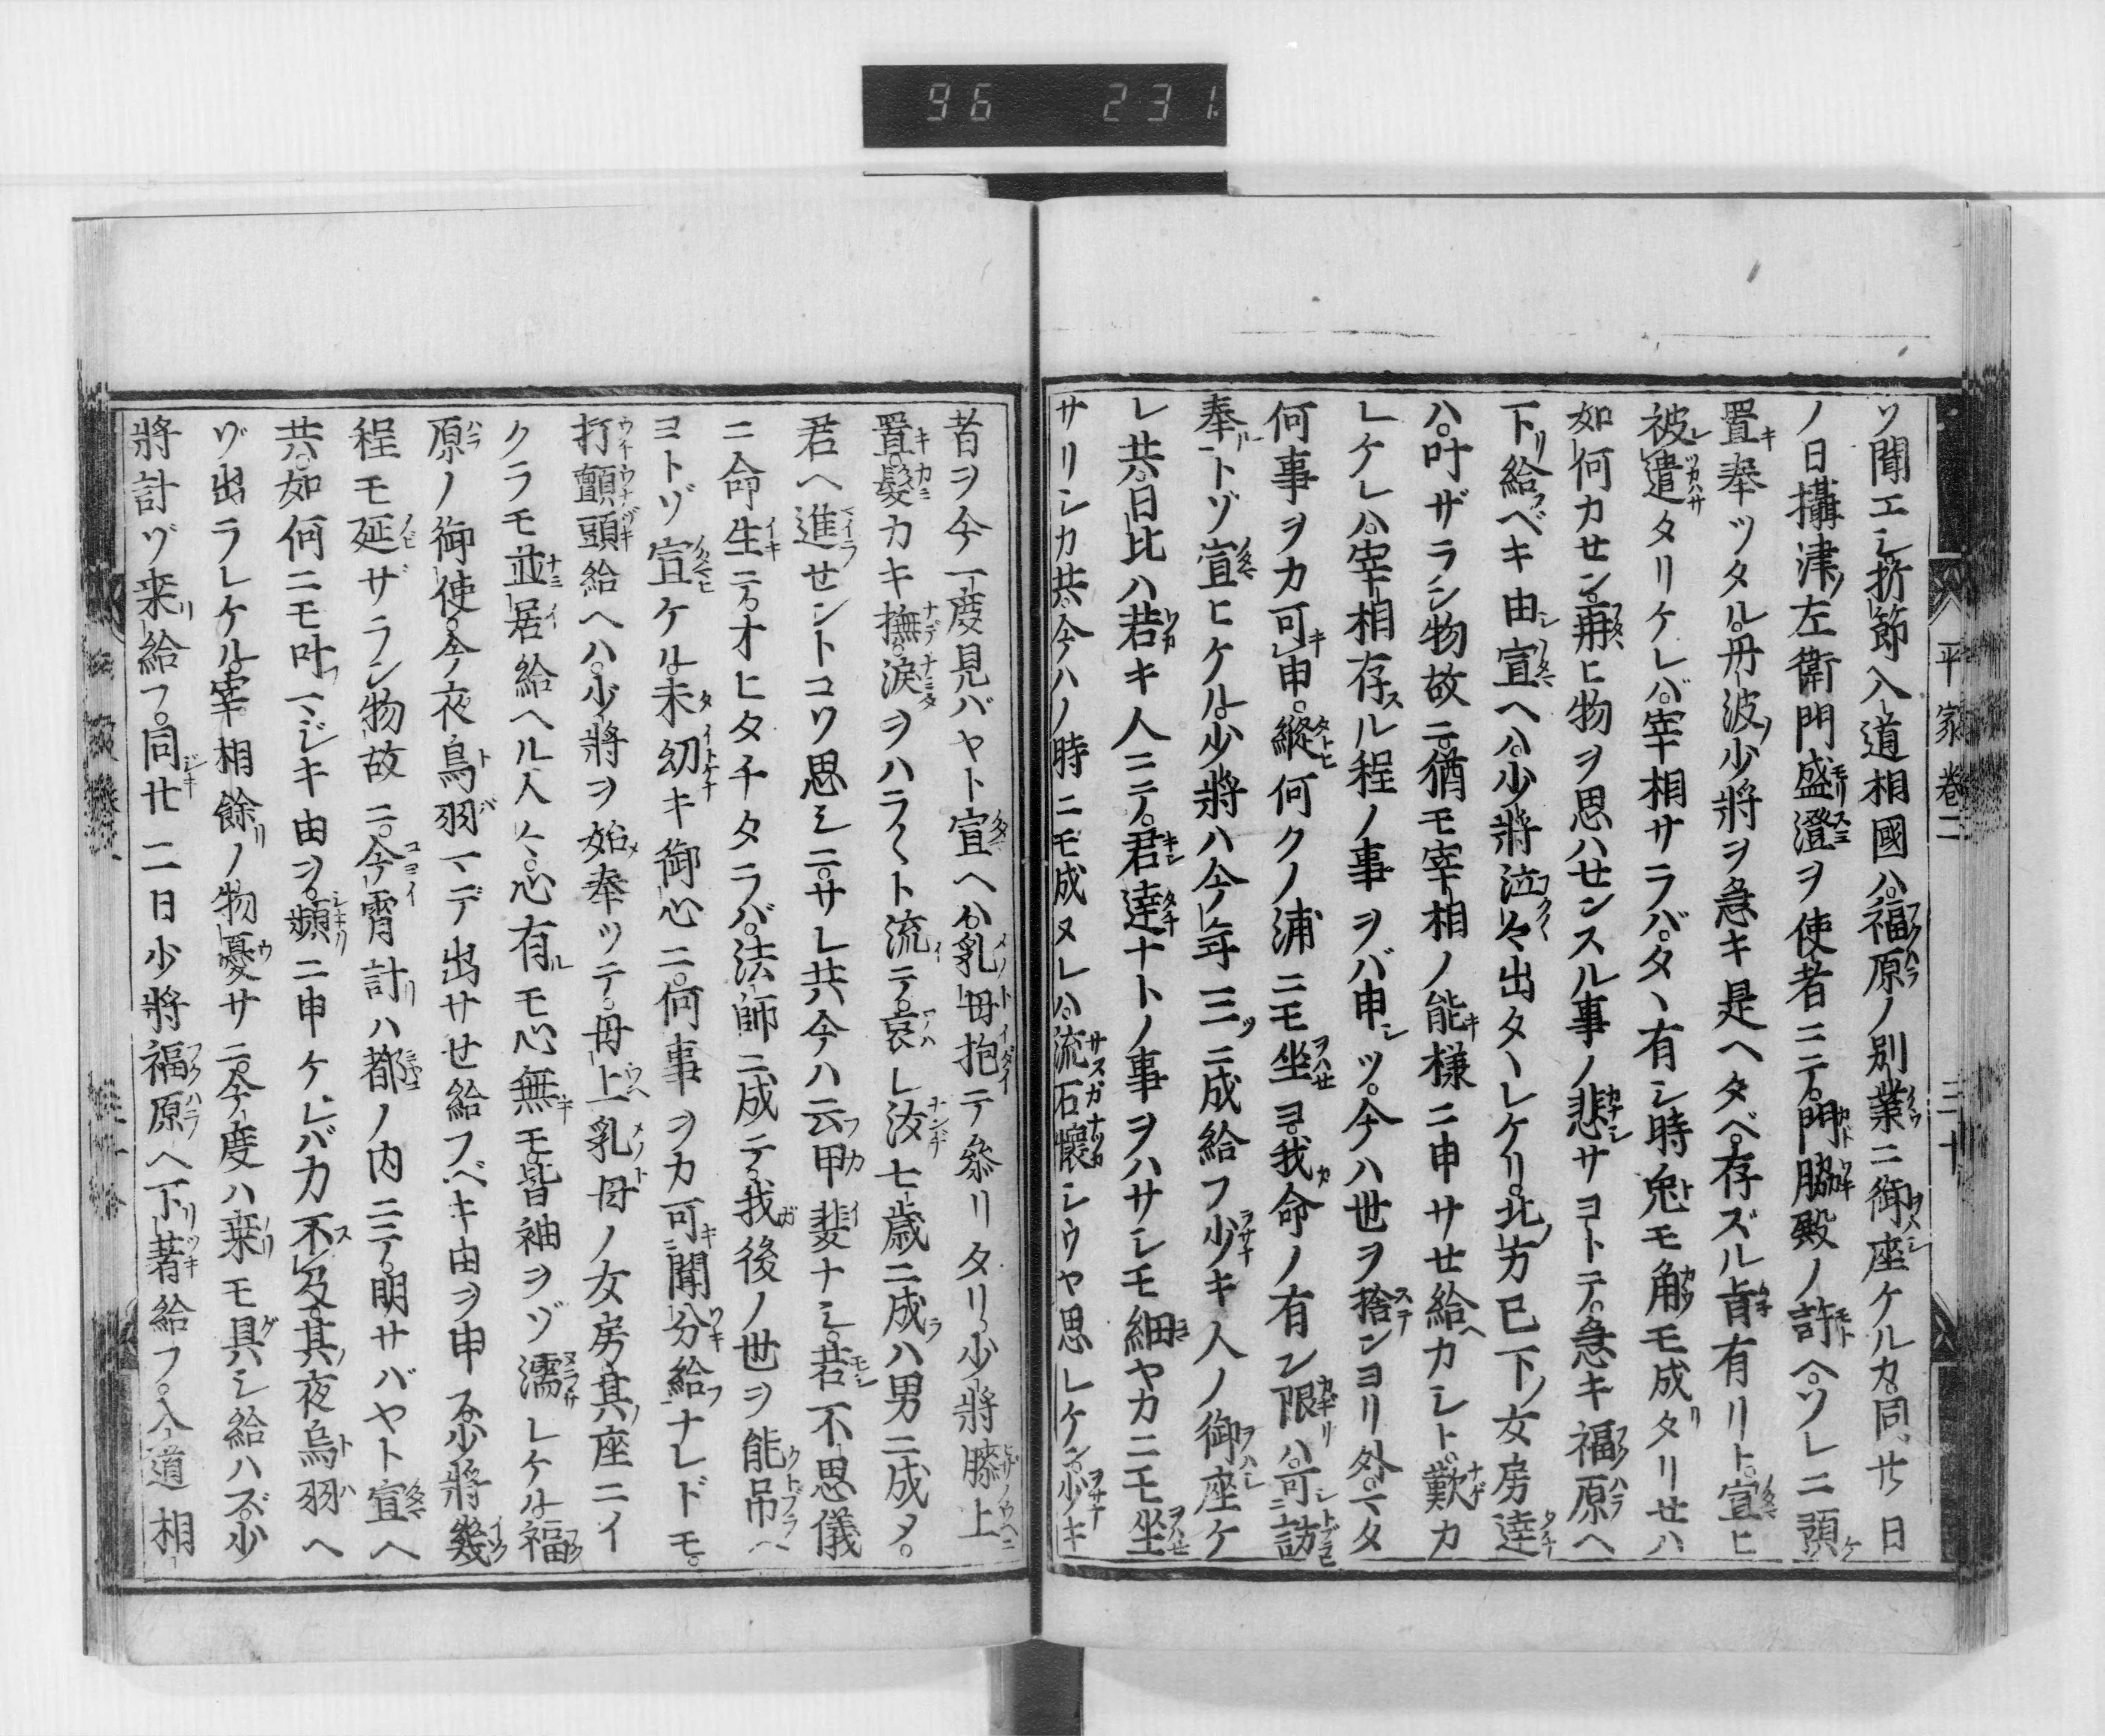 96 231
平家巻二
三十
ソ聞エシ折節入道相國ハ。福原ノ別業ニ御座ケルカ。同廿日
ノ日攝津左衛門盛澄ヲ使者ニテ。門脇殿ノ許ヘ。ソレニ預ケ
置奉ツタル。丹波少將ヲ急キ是ヘタベ。存ズル旨有リト。宣ヒ
被遣タリケレバ。宰相サラバ。タヽ有シ時兎モ角モ成タリせハ
如何カせン。再ヒ物ヲ思ハせンスル事ノ悲サヨトテ。急キ福原ヘ
下給ベキ由宣ヘハ。少將泣々出タヽレケリ。北方已下ノ女房達
ハ。叶ザラン物故ニ。猶モ宰相ノ能様ニ申サせ給ヘカシト。歎カ
レケレハ。宰相存ル程ノ事ヲバ申ツ。今ハ世ヲ捨ンヨリ外。マタ
何事ヲカ可申。縦何クノ浦ニモ坐ヨ。我命ノ有ン限ハ。可訪
奉トゾ宣ヒケル。少將ハ今年三ニ成給フ少キ人ノ御座ケ
レ共。日比ハ若キ人ニテ。君達ナトノ事ヲハサシモ細ヤカニモ坐
サリシカ共。今ハノ時ニモ成ヌレハ。流石懷シウヤ思レケン。少キ
者ヲ今一度見バヤト宣ヘハ。乳母抱テ參リタリ。少將膝上
置。髮カキ撫。涙ヲハラ〱ト流テ。哀レ汝七歳ニ成ハ男ニ成〆。
君ヘ進せントコソ思シニ。サレ共今ハ云甲斐ナシ。若不思儀
ニ命生テ。オヒタチタラバ。法師ニ成テ。我後ノ世ヲ能吊ヘ
ヨトゾ宣ケル。未幼キ御心ニ。何事ヲカ可聞分給ナレドモ。
打顫頭給ヘハ。少將ヲ始奉ツテ。母上乳母ノ女房其座ニイ
クラモ並居給ヘル人々。心有モ心無モ。皆袖ヲゾ濡レケル。福
原ノ御使。今夜鳥羽マデ出サせ給フベキ由ヲ申ス。少將幾
程モ延ザラン物故ニ。今宵計ハ都ノ内ニテ。明サバヤト宣ヘ
共。如何ニモ叶マジキ由ヲ。頻ニ申ケレバ力不及。其夜鳥羽ヘ
ゾ出ラレケル。宰相餘ノ物憂サニ。今度ハ乗モ具シ給ハズ。少
將計ゾ来給フ。同廿二日少將福原ヘ下著給フ。入道相